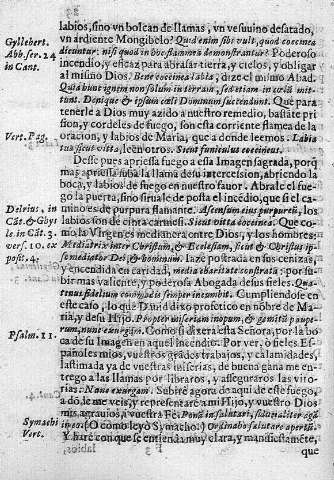 labios, sino vn bolcan de llamas, vn vesuuino desatado,
vn ardiente Mongibelo? Quid enim sibi vult, quod coccinea
dicuntur: nisi quod in hoc flamma demonstrantur? Poderoso
incendio, y eficaz para abrasar tierra, y cielos, y obligar
al mismo Dios. Bene coccinea labia, dize el mismo Abad.
Quia hunc ignem non solum in terram, sed etiam in cœlū mit-
tunt. Denique & ipsum cœli Dominum succendunt. Que para
tenerle a Dios muy azido a nuestro remedio, bastate pri
sion, y cordeles de fuego, son essa corriente flamea de la
oracion, y labios de Maria, que a donde leemos. Labia
tua sicut vitta, leen otros. Sicut funiculus coccineus.
Gyllebert.
Abb. ser. 24
in Cant.
Vert. Pag.
Desse pues apriessa fuego a essa Imagen sagrada, porq̃
mas apriessa suba la llama de su intercession, abriendo la
boca, y labios de fuego en nuestro fauor. Abrale el fue
go la puerta, sino siruale de posta el incẽdio, que si el ca
mino es de purpura flamante. Ascensum eius purpureū, los
labios son de essa carmesi. Sicut vitta coccinea. Que co-
mo la Virgen es medianera entre Dios, y los hombres.
Mediatrix inter Christum, & Ecclesiam, sicut & Christus ip-
se mediator Dei, & hominum. Iaze postrada en sus cenizas,
y encendida en caridad, media charitate constrata; por su-
bir mas valiente, y poderosa Abogada de sus fieles.
Delrius, in
Cāt. & Ghys
le in Cāt. 3.
vers. 10. ex
posit. 4.
este caso, lo que Dauid dixo profetico en nõbre de Ma-
ria, y de su Hijo. Propter miseriam inopum, & gemitū paupe-
rum, nunc exurgam. Como si dixera esta Señora, por la bo
ca de su Imagen en aquel incendio: Por ver, ò fieles Es-
pañoles mios, vuestros grandes trabajos, y calamidades,
lastimada ya de vuestras miserias, de buena gana me en-
trego a las llamas por libraros, y asseguraros las vito-
rias: Nunc exurgam. Subirè agora de aqui deste fuego,
a dõ, le me veis, y representarè a mi Hijo, y vuestro Dios
mis agrauios, a vuestra Fè. Ponā in salutari, fiducialiter agā
in eo. (O como leyò Symacho:) Ordinabo salutare apertū.
Y harè con que se entienda muy clara, y manifiestamẽte,
Psalm. 11.
Symachi
Vert.
que